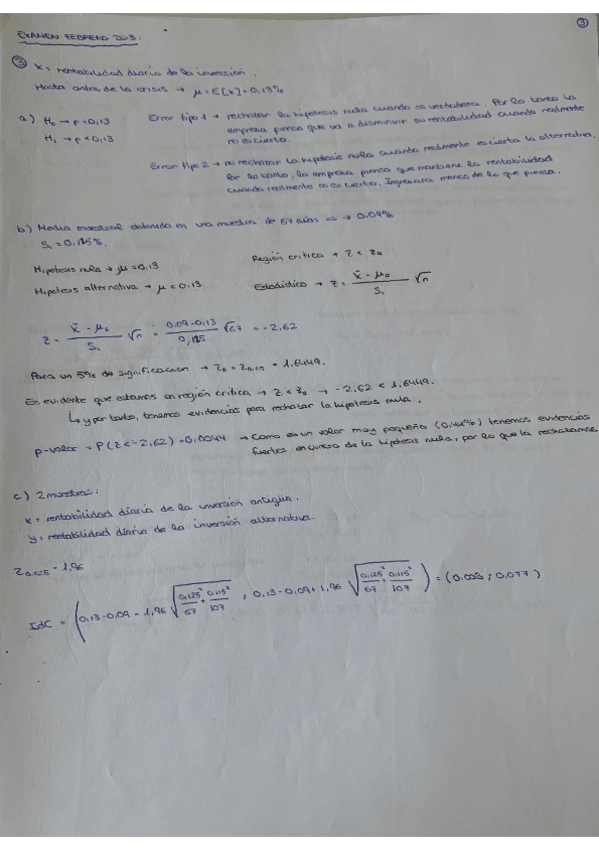 EXAMEN FEBRERO 2013:
3
③ X = rentabilidad diaria de la inversión.
Hasta antes de la crisis → μ = E[X] = 0,13%
a) H₀ → μ = 0,13
H₁ → μ < 0,13
Error tipo 1 → rechazar la hipótesis nula cuando es verdadera. Por lo tanto la
empresa piensa que va a disminuir su rentabilidad cuando realmente
no es cierto.
Error tipo 2 → no rechazar la hipótesis nula cuando realmente es cierta la alternativa.
Por lo tanto, la empresa piensa que mantiene la rentabilidad
cuando realmente no es cierto. Ingresará menos de lo que piensa.
b) Media muestral obtenida en una muestra de 67 días es → 0.09%
S₁ = 0,125%.
Hipótesis nula → μ = 0,13
Región crítica → Z < Zα
Hipótesis alternativa → μ < 0,13
Estadístico → Z = (x̄ - μ₀)/S₁ √n
Z = (x̄ - μ₀)/S₁ √n = (0,09-0,13)/0,125 √67 = -2,62
Para un 5% de significación → Zα = Z0,05 = 1.6449.
Es evidente que estamos en región crítica → Z < Zα → -2,62 < 1,6449.
↳ y por tanto, tenemos evidencias para rechazar la hipótesis nula.
p-valor = P(Z < -2,62) = 0.0044 → Como es un valor muy pequeño (0,44%) tenemos evidencias
fuertes en contra de la hipótesis nula, por lo que la rechazamos.
c) 2 muestras:
X = rentabilidad diaria de la inversión antigua.
Y = rentabilidad diaria de la inversión alternativa.
Z0,025 = 1,96
IdC = (0,13-0,09 - 1,96 √(0,125²/67 + 0,115²/107) , 0,13-0,09 + 1,96 √(0,125²/67 + 0,115²/107)) = (0,003 ; 0,077)